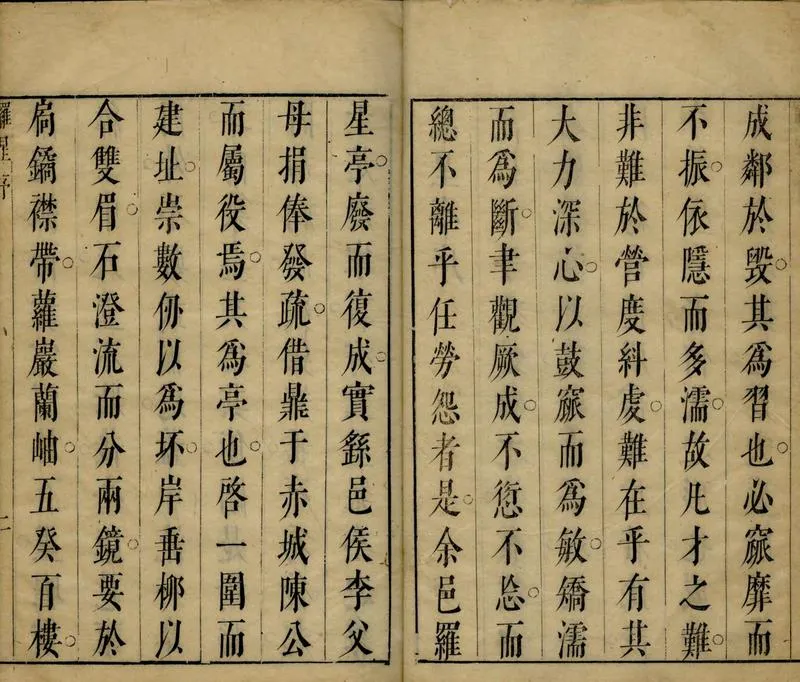 成鄰於毀其為習也必窳靡而
不振依隱而多濡故凡才之難
非難於營度紏䖏難在乎有其
大力深心以鼓窳而為敏矯濡
而為斷聿觀厥成不愆不忩而
總不離乎任勞怨者是余邑羅
星亭廢而復成實繇邑侯李父
母捐俸發疏借鼎于赤城陳公
而屬役焉其為亭也啓一圍而
建址崇數仞以為坏岸畨柳以
合雙眉石澄流而分兩鏡要於
扃鐍襟帶蘿巖蘭岫五癸百樓
羅星序
二